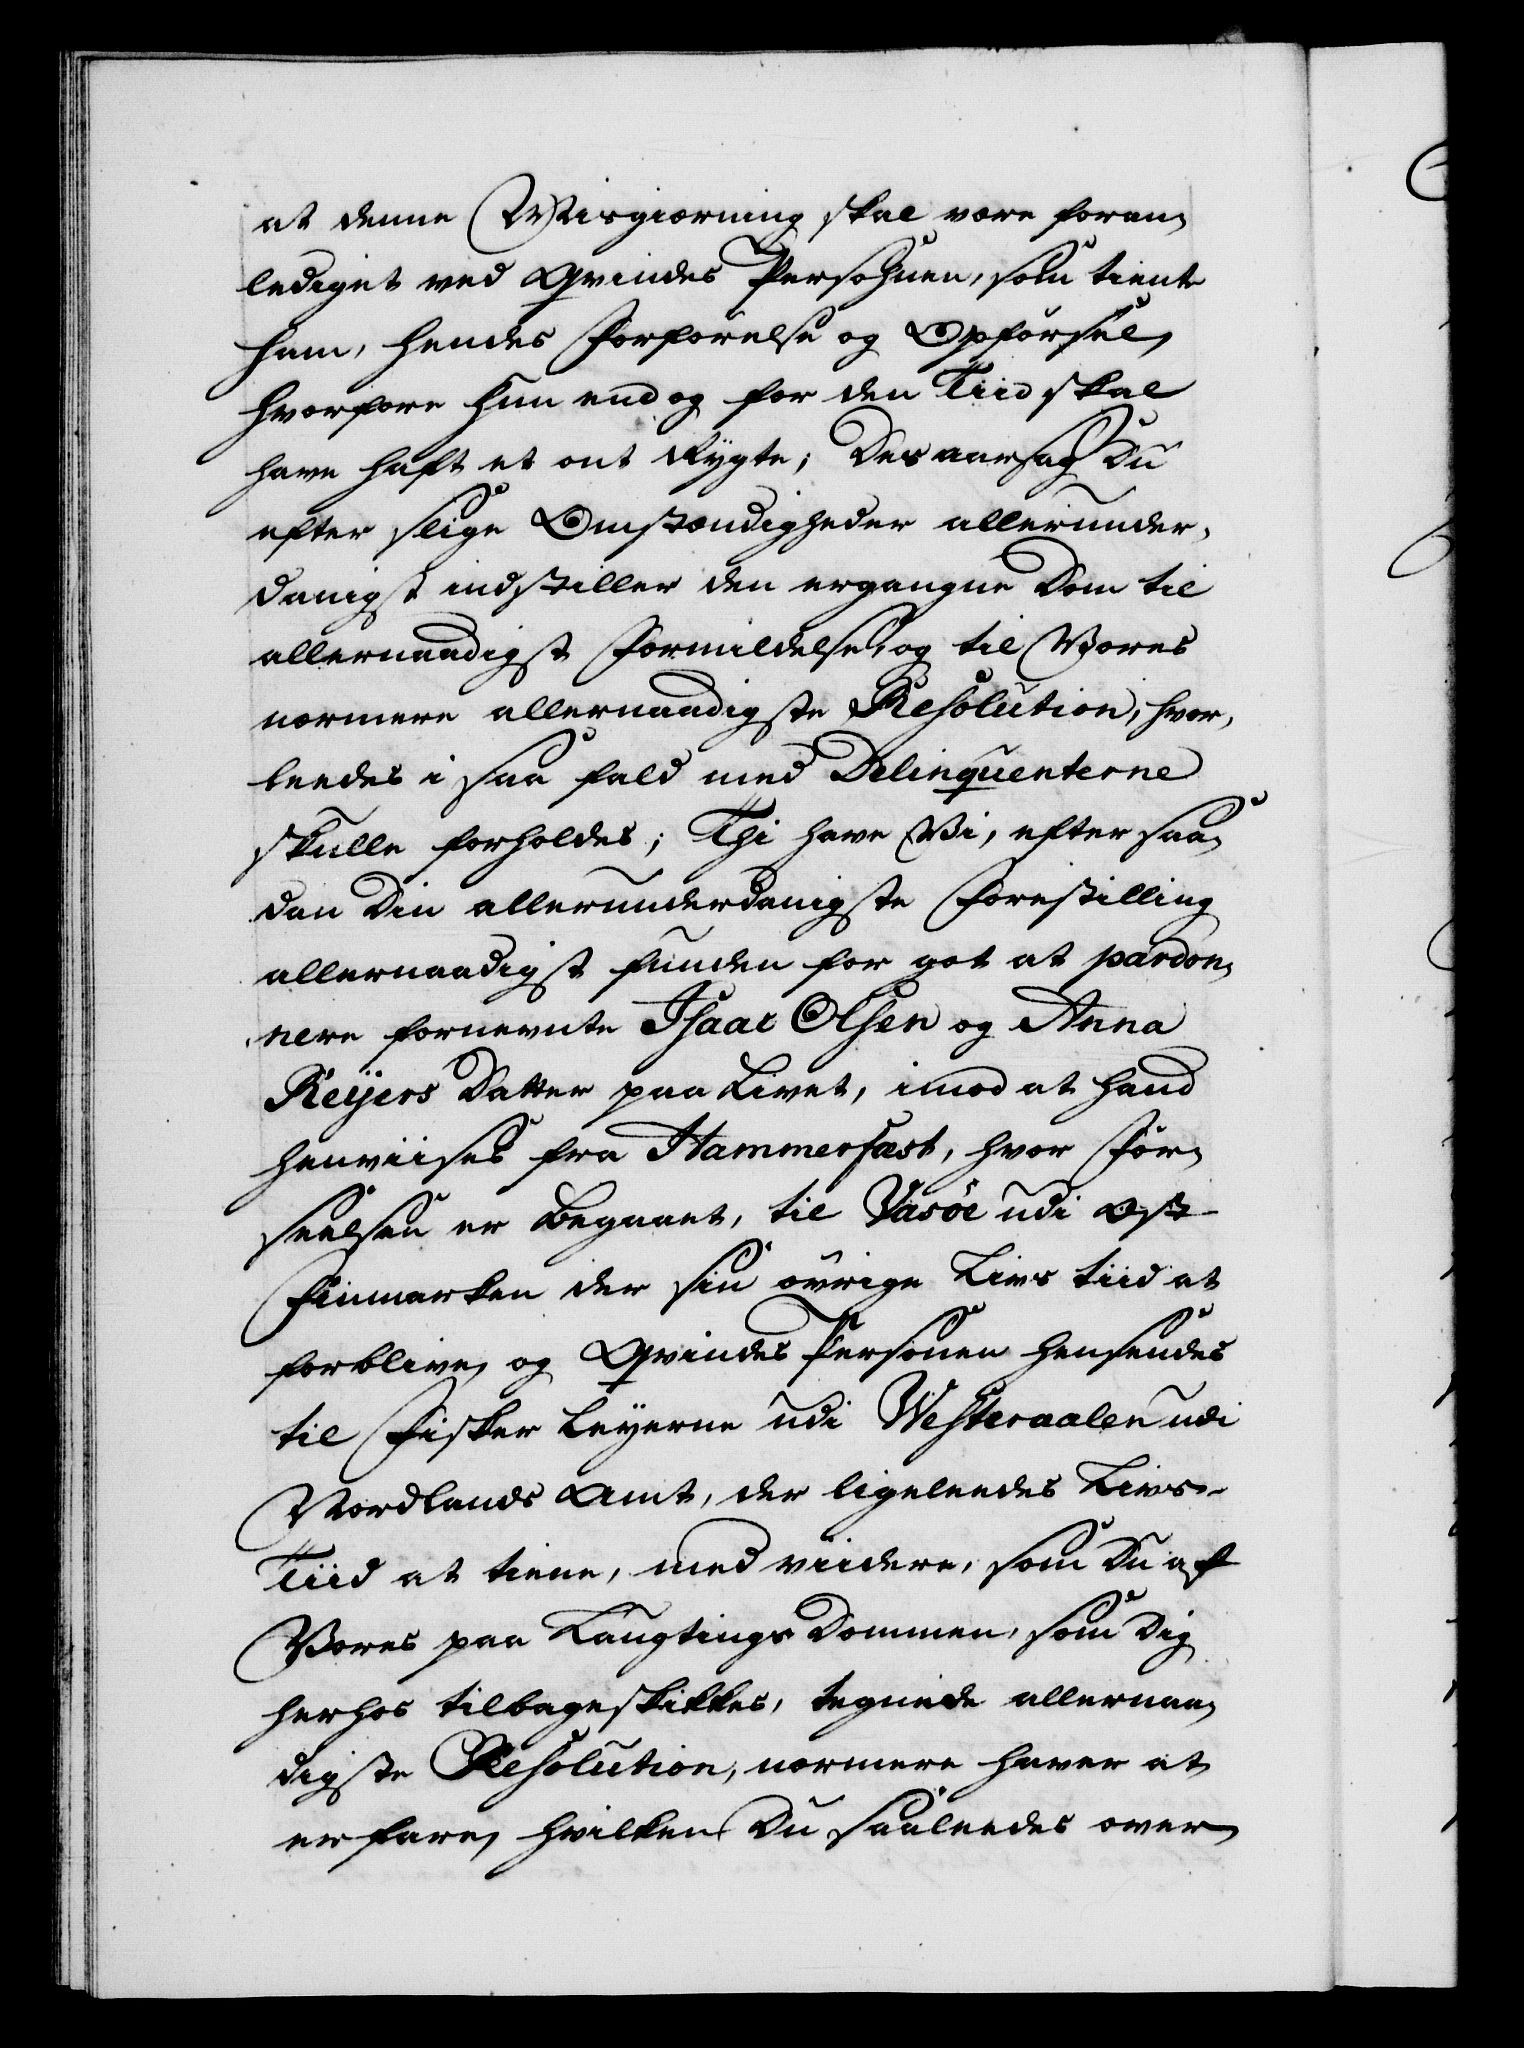 at denne Misgierning skal være foran,
lediget ved Qvindes Persohnen, som tiente
ham, hendes Forførelse og Opførsel,
hvorfore hun end og for den Tiid skal
have haft et ont Rygte; Des aarsag Du
efter slige Omstændigheder allerunder,
danigst indstiller den ergangne Dom til
allernaadigst Formildelse, og til Vores
nærmere allernaadigste Resolution, hvor,
leedes i saa fald med Delinquenterne
skulle forholdes; Thi have Vi, efter saa,
dan Din allerunderdanigste Forestilling
allernaadigst funden for got at pardon,
nere fornevnte Isaac Olsen og Anna
Reijers Datter paa Livet, imod at hand
henviises fra Hammerfæst, hvor For,
seelsen er begaaet, til Vasöe udi Øst
Finmarken der sin øvrige Livs tiid at
forblive, og Qvindes Personen hensendes
til Fisker Leyerne udi Westeraalen udi
Nordlands Amt, der ligeleedes Livs-
Tiid at tiene, med viidere, som Du af
Vores paa Laugtings Dommen, som Dig
herhos tilbageskikkes, tegnede allernaa,
digste Resolution, nærmere haver at
erfare, hvilken Du saaleedes over,